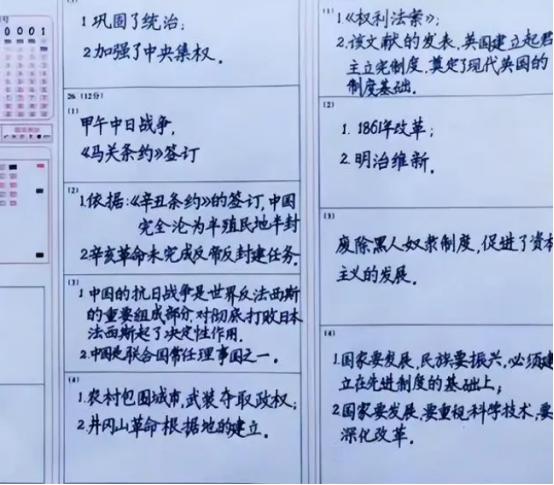 0001
1.巩固了统治;
2.加强了中央集权.
26 (12分)
(1)
甲午中日战争,
《马关条约》签订
(2)
1.依据:《辛丑条约》的签订,中国
完全沦为半殖民地半封
2.辛亥革命未完成反帝反封建任务.
(3)
1.中国的抗日战争是世界反法西斯
的重要组成部分,对彻底打败日本
法西斯起了决定性作用.
2.中国是联合国常任理事国之一.
(4)
1.农村包围城市,武装夺取政权;
2.井冈山革命根据地的建立.
(1)
1.《权利法案》;
2.该文献的发表,英国建立起君
主立宪制度,奠定了现代英国的
制度基础.
(2)
1. 1861年改革;
2. 明治维新.
(3)
废除黑人奴隶制度,促进了资本
主义的发展.
(4)
1.国家要发展,民族要振兴,必须建
立在先进制度的基础上;
2.国家要发展,要重视科学技术,要
深化改革.